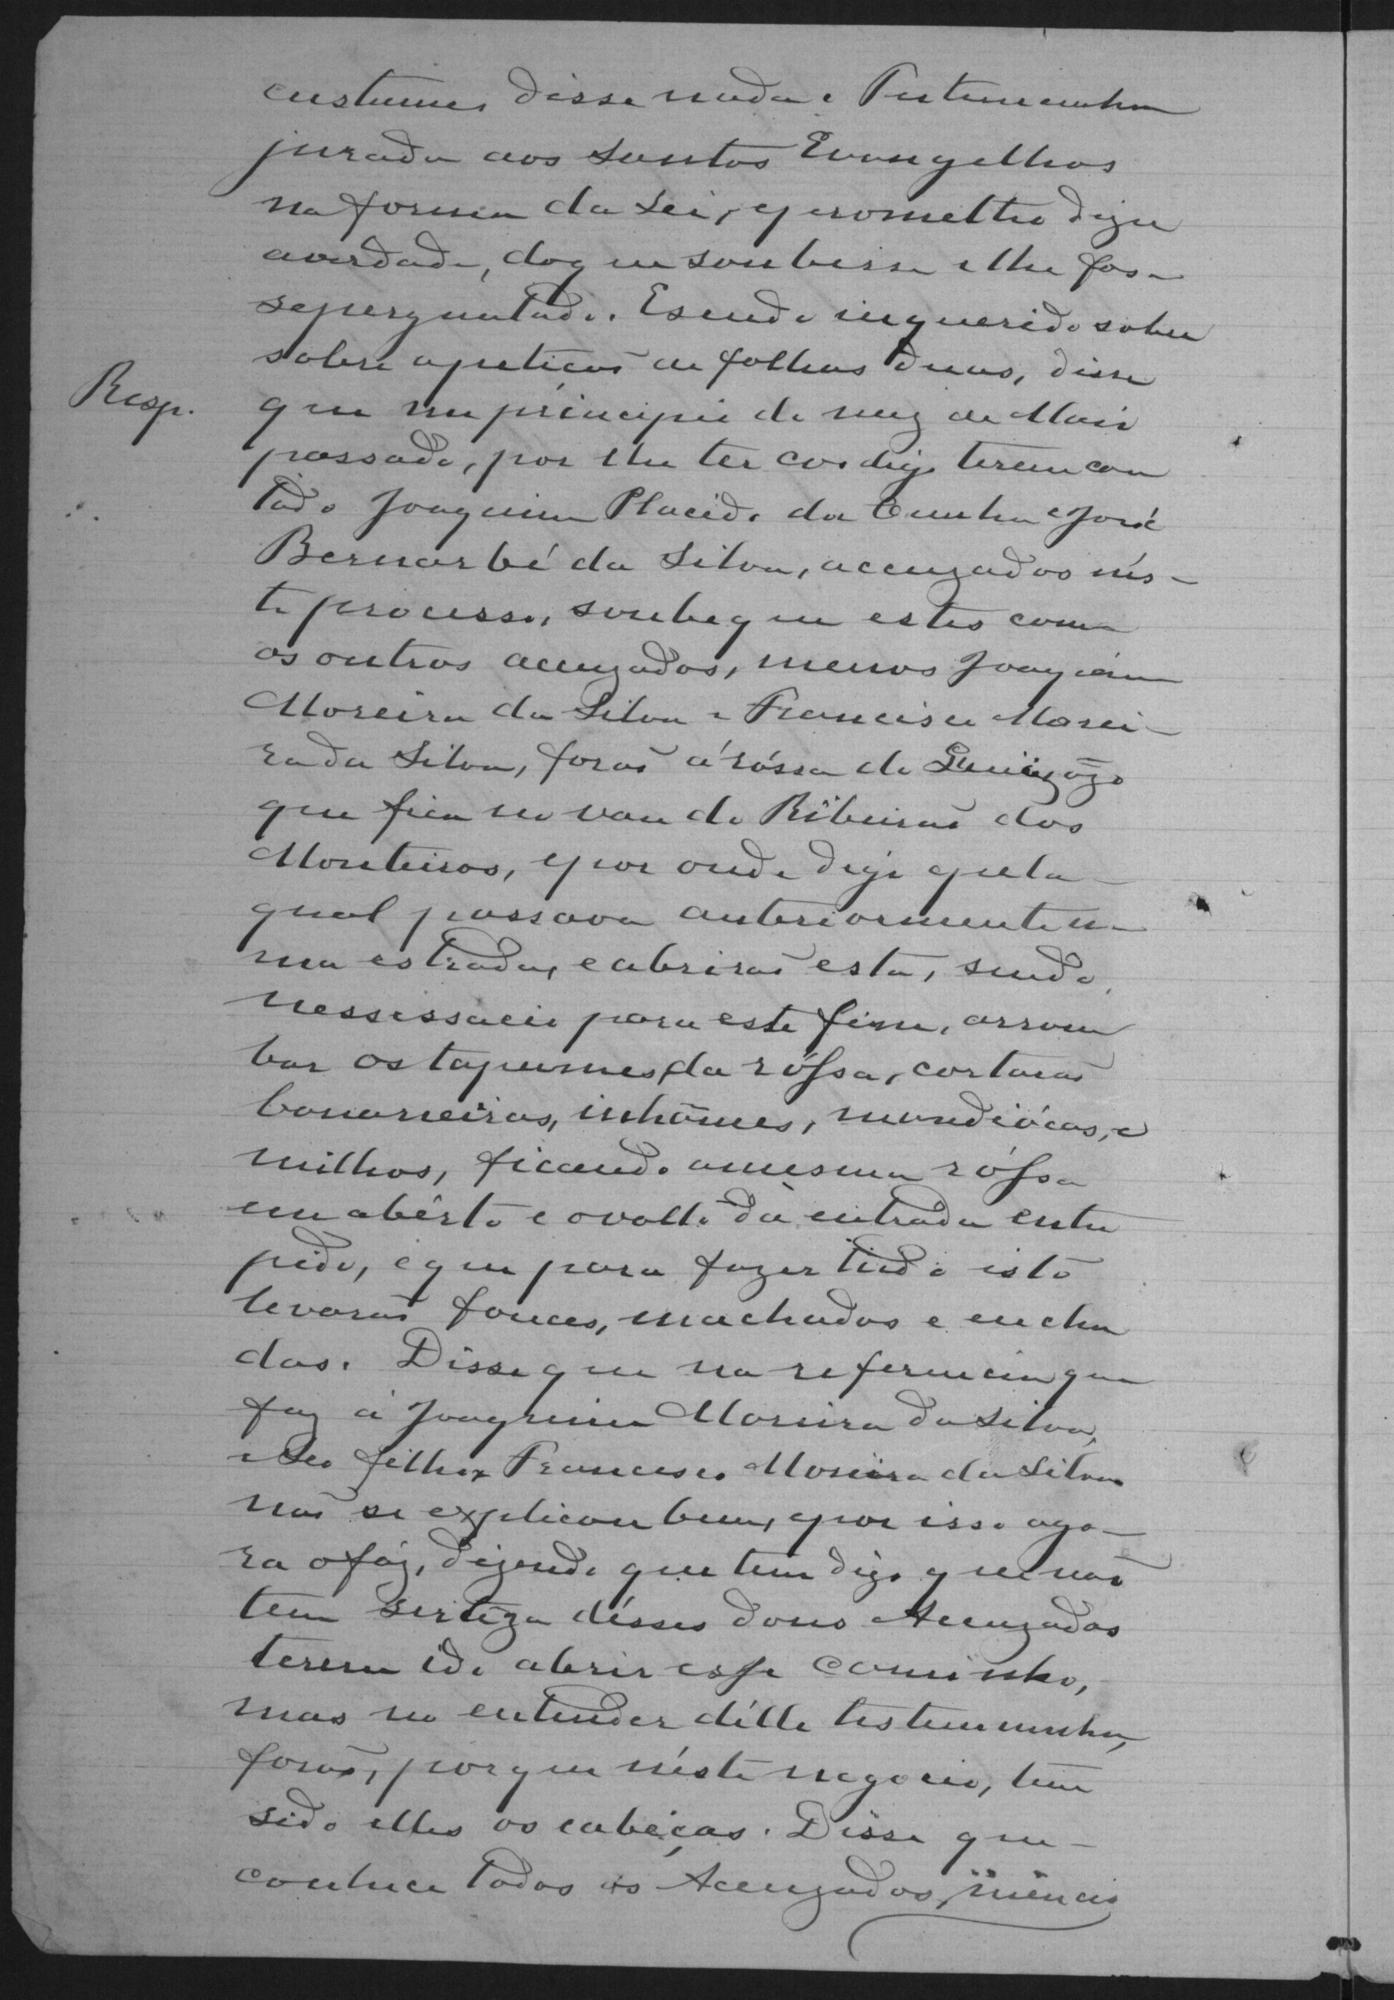 custumes disse nada e Testemunha
jurada aos Santos Evangelhos
na forma da Lei, e prometteo dizer
averdade, doque soubesse e lhe fos-
seperguntado. Esendo inquerido sobre
sobre apeticaõ de folhas duas, disse
Resp. que no principio do mez de Maio
passado, por lhe ter cos digo terem con
tado Joaquim Placido da Cunha e José
Bernarbé da Silva, accuzados nés-
te processo, soube que estes com
os outros accuzados, menos Joaquim
Moreira da Silva e Francisco Morei-
ra da Silva, foraõ á róssa do
que fica no vau do Ribeiraõ dos
Monteiros, e por onde digo e pela
qual passava anteriormente u-
ma estrada, e abriraõ esta, sendo
nessessario para este fim, arrom
bar os tapumes da róssa, cortaraõ
bananeiras, inhâmes, mandiócas, e
milhos, ficando amesma róssa
em abérto e ovallo da entrada entu
pido, e que para fazer tudo isto
levaraõ fouces, machados e encha
das. Disse que na referencia que
faz á Joaquim Moreira da Silva,
e seo filho Francisco Moreira da Silva
naõ se explicou bem, e por isso ago-
ra ofáz, dizendo que tem digo que naõ
tem serteza désses dous Accuzados
terem ido abrir esse caminho,
mas no entender délle testemunha,
foraõ, porque néste negocio, tem
sido elles os cabéças. Disse que
conhece todos os Accuzados,